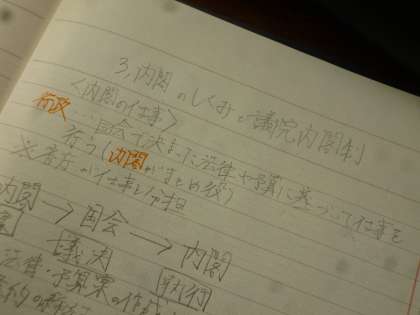 3, 内閣のしくみと議院内閣制
<内閣の仕事>
行政…国会で決まった法律や予算に基づいて仕事を
行う(内閣がまとめ役)
※各庁が仕事し分担
内閣→国会→内閣
議決 執行
法律・予算案の作